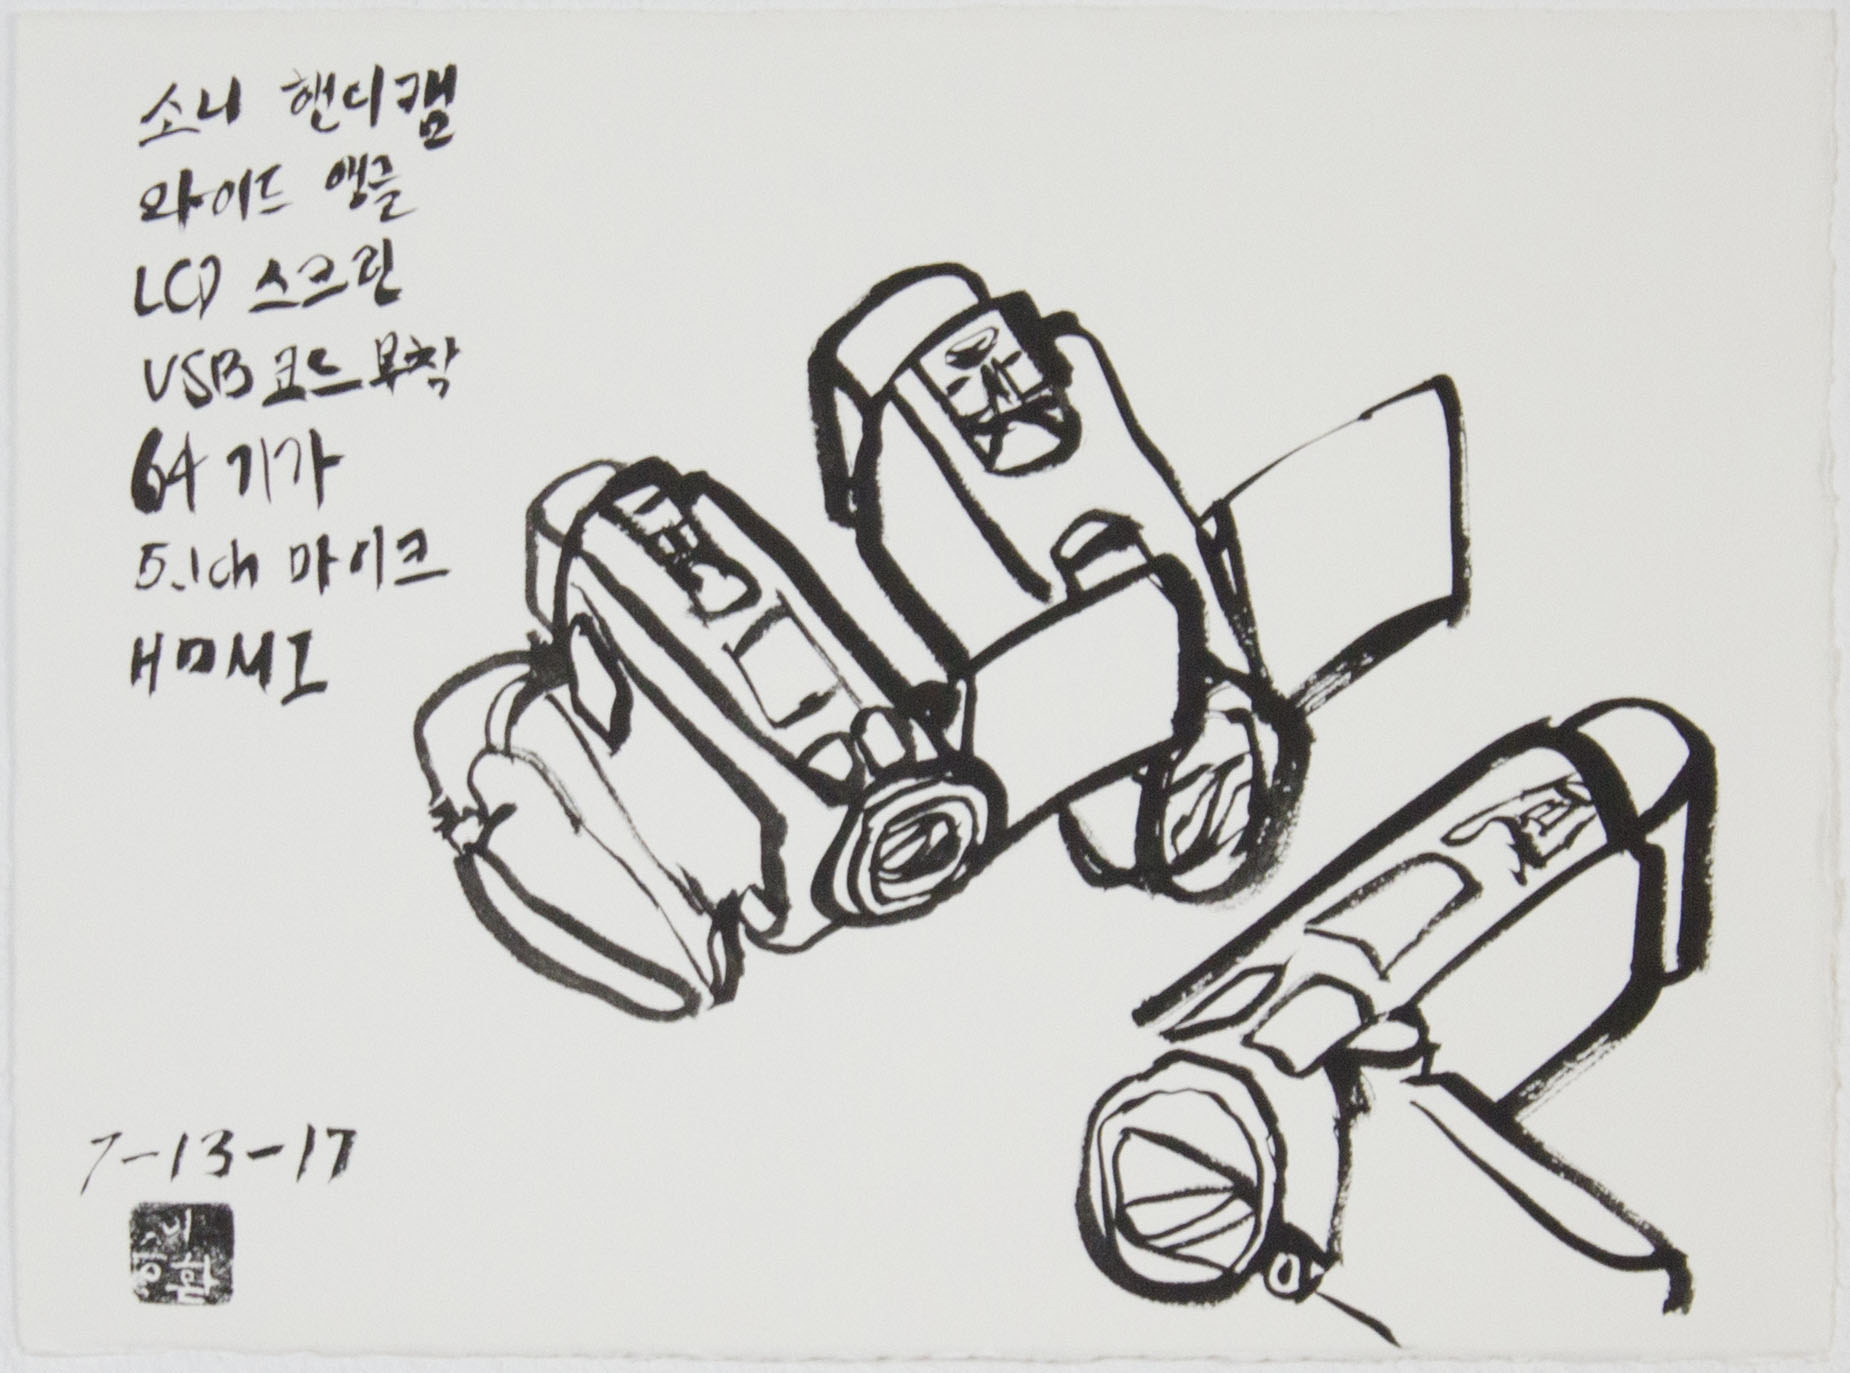 소니 핸디캠
와이드 앵글
LCD 스크린
USB 코드 부착
64 기가
5.1ch 마이크
HDMI
7-13-17